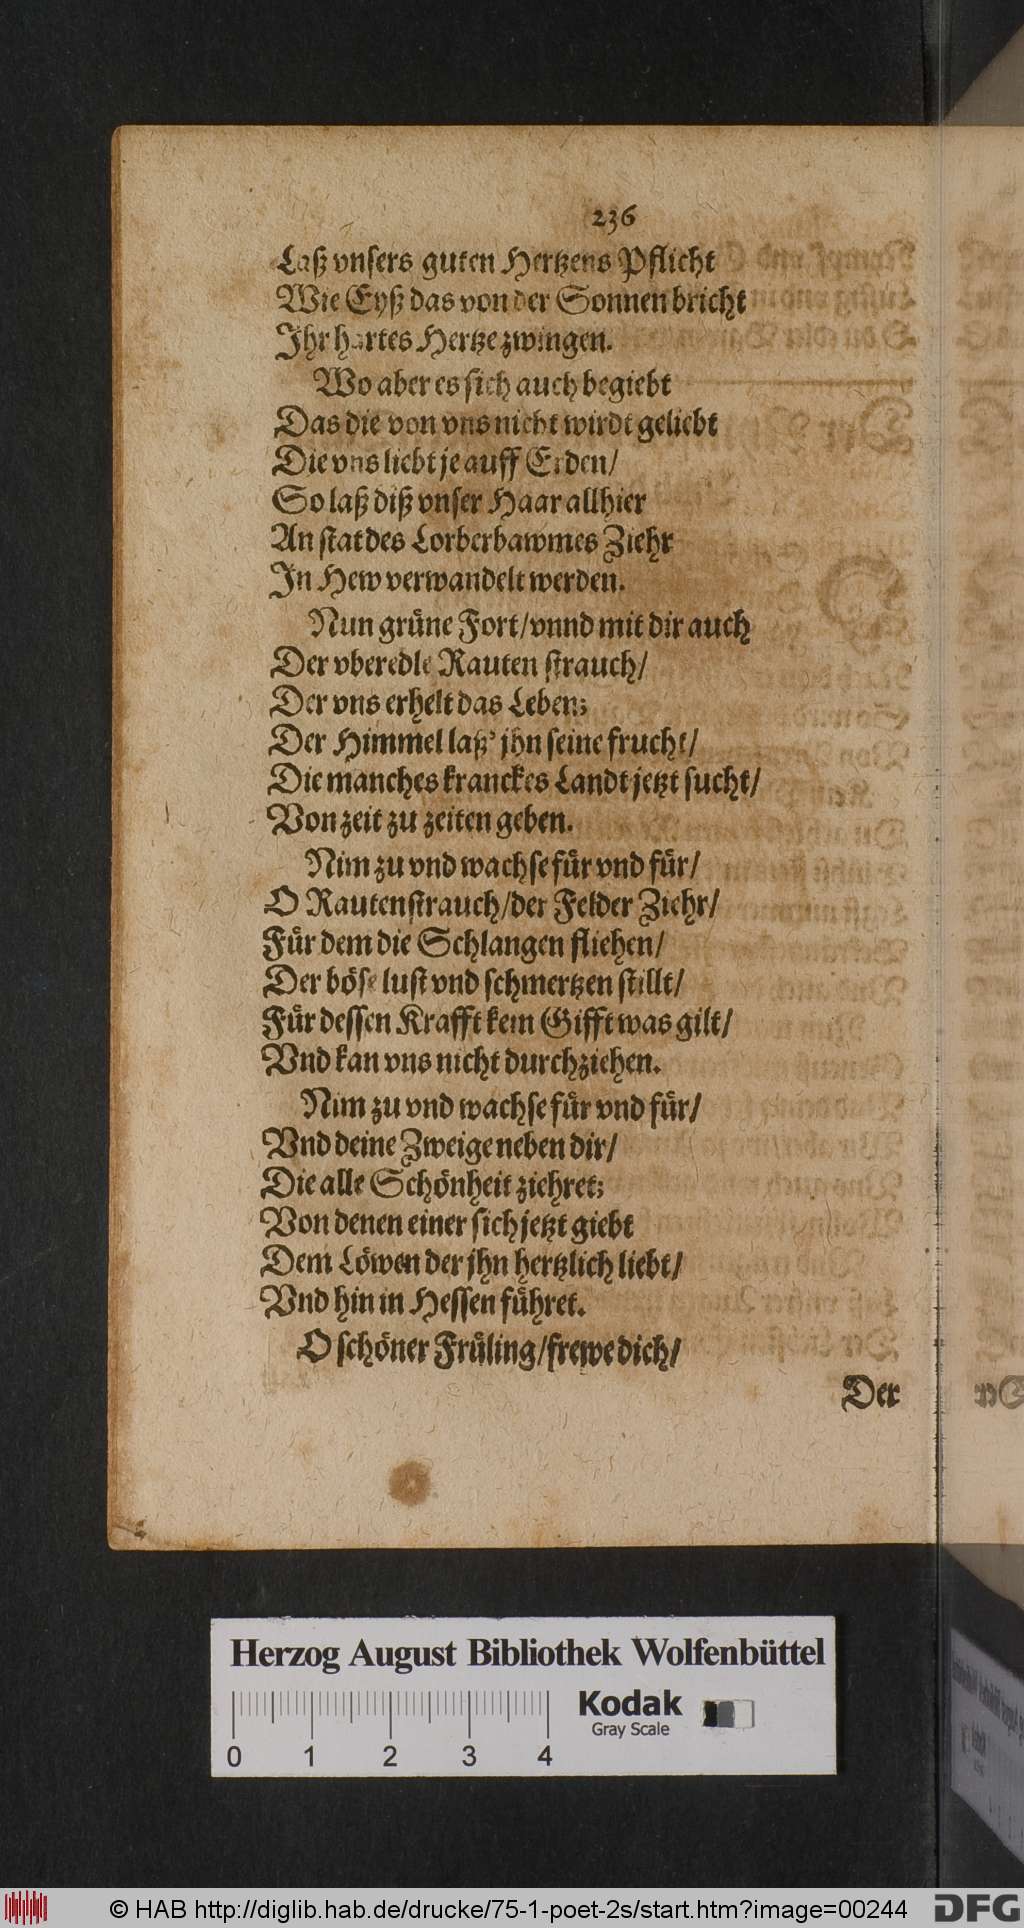 236
Laß vnsers guten Hertzens Pflicht
Wie Eyß das von der Sonnen bricht
Ihr hartes Hertze zwingen.
Wo aber es sich auch begiebt
Das die von vns nicht wirdt geliebt
Die vns liebt je auff Erden/
So laß diß vnser Haar allhier
An stat des Lorberbawmes Ziehr
In Hew verwandelt werden.
Nun grüne Fort/vnnd mit dir auch
Der vberedle Rauten strauch/
Der vns erhelt das Leben;
Der Himmel laß' jhn seine frucht/
Die manches kranckes Landt jetzt sucht/
Von zeit zu zeiten geben.
Nim zu vnd wachse für vnd für/
O Rautenstrauch/der Felder Ziehr/
Für dem die Schlangen fliehen/
Der böse lust vnd schmertzen stillt/
Für dessen Krafft kein Gifft was gilt/
Vnd kan vns nicht durchziehen.
Nim zu vnd wachse für vnd für/
Vnd deine Zweige neben dir/
Die alle Schönheit ziehret;
Von denen einer sich jetzt giebt
Dem Löwen der jhn hertzlich liebt/
Vnd hin in Hessen führet.
O schöner Früling/frewe dich/
Der
Herzog August Bibliothek Wolfenbüttel
Kodak
Gray Scale
0 1 2 3 4
© HAB http://diglib.hab.de/drucke/75-1-poet-2s/start.htm?image=00244
DFG